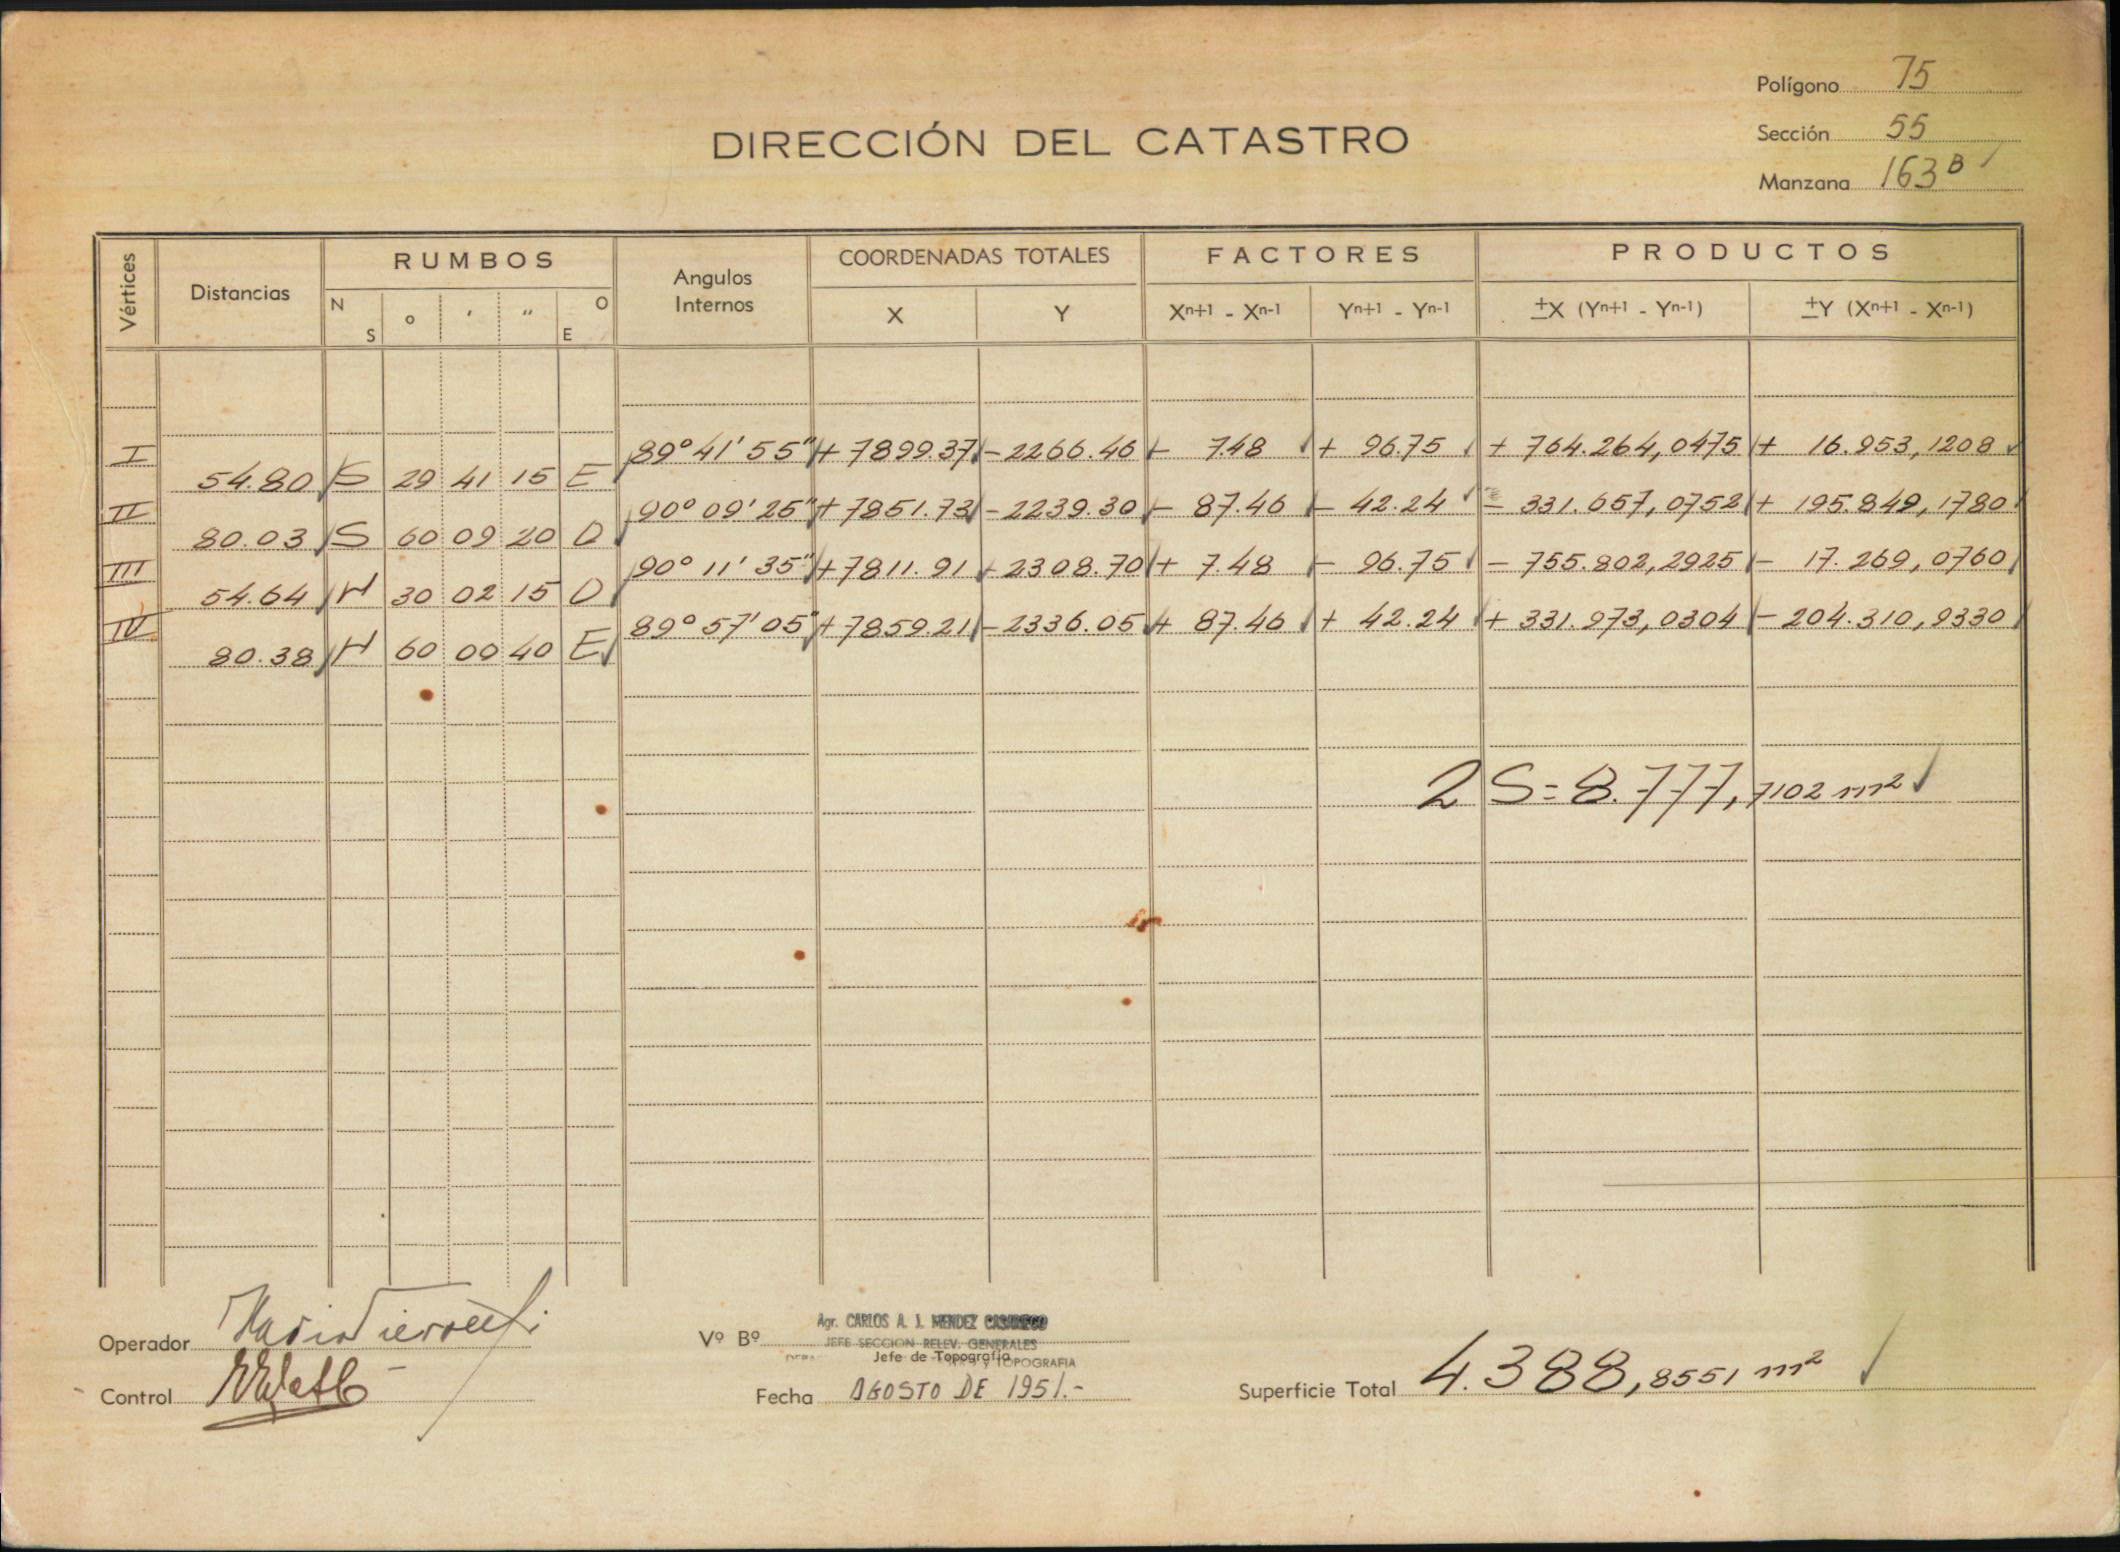 Polígono 75
DIRECCIÓN DEL CATASTRO
Sección 55
Manzana 163 B
Vértices Distancias RUMBOS N S o ′ ″ O E Angulos Internos COORDENADAS TOTALES X Y FACTORES Xn+1 - Xn-1 Yn+1 - Yn-1 PRODUCTOS ±X (Yn+1 - Yn-1) ±Y (Xn+1 - Xn-1)
I 89° 41' 55" + 7899.37 - 2266.46 - 7.48 + 96.75 + 764.264,0475 + 16.953,1208
54.80 S 29 41 15 E
II 90° 09' 25" + 7851.73 - 2239.30 - 87.46 - 42.24 - 331.657,0752 + 195.849,1780
80.03 S 60 09 20 O
III 90° 11' 35" + 7811.91 - 2308.70 + 7.48 - 96.75 - 755.802,2925 - 17.269,0760
54.64 N 30 02 15 O
IV 89° 57' 05" + 7859.21 - 2336.05 + 87.46 + 42.24 + 331.973,0304 - 204.310,9330
80.38 N 60 00 40 E
2 S = 8.777,7102 m²
Operador
Vº Bº Agr. CARLOS A. J. MENDEZ CASARIEGO
JEFE SECCION RELEV. GENERALES
Jefe de Topografía
Y TOPOGRAFIA
Control
Fecha AGOSTO DE 1951.-
Superficie Total 4.388,8551 m²